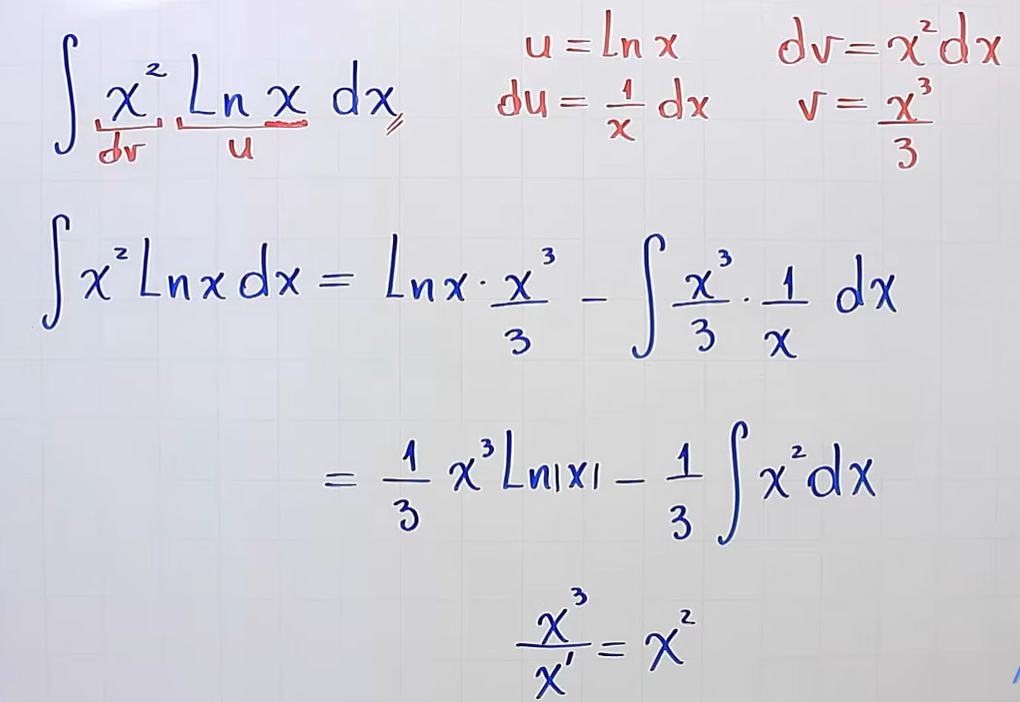 ∫ x² Ln x dx, u = Ln x dv = x² dx
dv u du = 1/x dx v = x³/3
∫ x² Ln x dx = Ln x · x³/3 − ∫ x³/3 · 1/x dx
= 1/3 x³ Ln|x| − 1/3 ∫ x² dx
x³/x¹ = x²